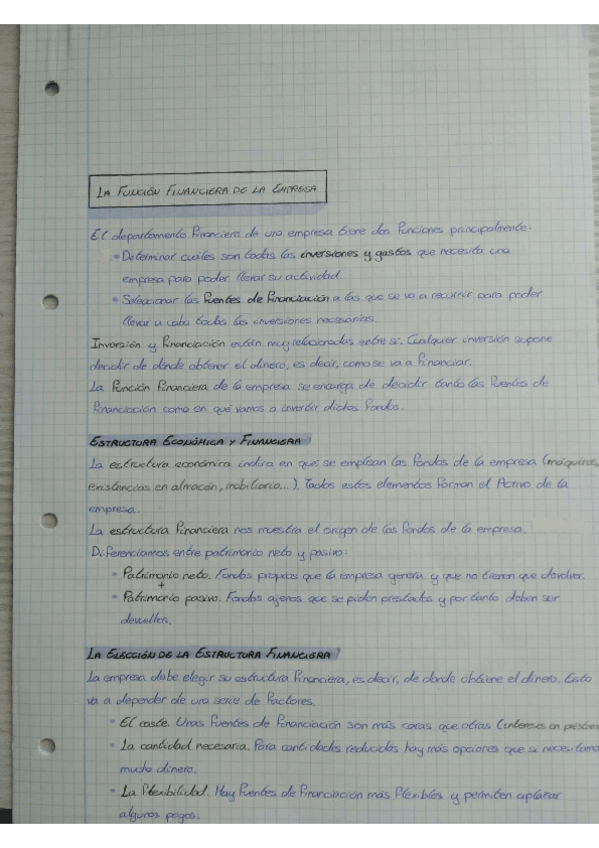 LA FUNCIÓN FINANCIERA DE LA EMPRESA
El departamento financiero de una empresa tiene dos funciones principalmente:
• Determinar cuáles son todas las inversiones y gastos que necesita una
empresa para poder llevar su actividad.
• Seleccionar las fuentes de financiación a las que se va a recurrir para poder
llevar a cabo todas las inversiones necesarias.
Inversión y financiación están muy relacionados entre si. Cualquier inversión supone
decidir de dónde obtener el dinero, es decir, como se va a financiar.
La función financiera de la empresa se encarga de decidir tanto las fuentes de
financiación como en qué vamos a invertir dichos fondos.
ESTRUCTURA ECONÓMICA Y FINANCIERA
La estructura económica indica en que se emplean los fondos de la empresa (máquinas,
existencias en almacén, mobiliario...). Todos estos elementos forman el Activo de la
empresa.
La estructura financiera nos muestra el origen de los fondos de la empresa.
Diferenciamos entre patrimonio neto y pasivo:
• Patrimonio neto. Fondos propios que la empresa genera y que no tienen que devolver.
+
• Patrimonio pasivo. Fondos ajenos que se piden prestados y por tanto deben ser
devueltos.
LA ELECCIÓN DE LA ESTRUCTURA FINANCIERA
La empresa debe elegir su estructura financiera, es decir, de donde obtiene el dinero. Esto
va a depender de una serie de factores.
• El coste. Unas fuentes de financiación son más caras que otras (intereses en
• La cantidad necesaria. Para cantidades reducidas hay más opciones que si
mucho dinero.
• La flexibilidad. Hay fuentes de financiación más flexibles y permiten aplazar
algunos pagos.